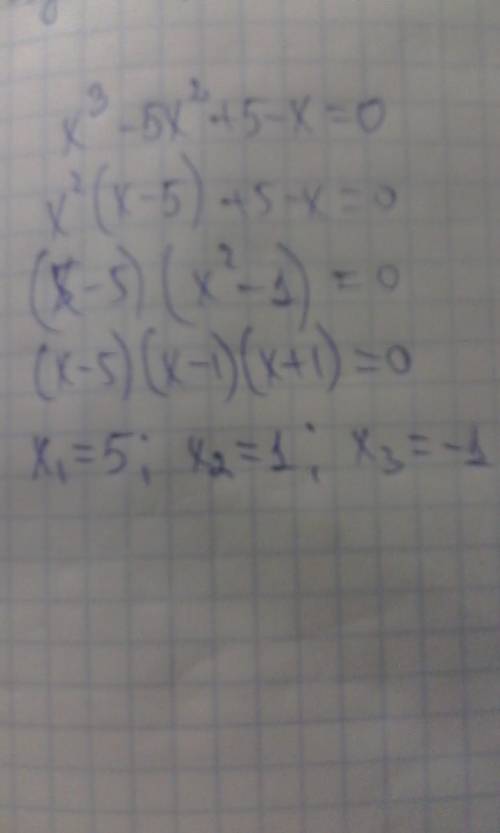 x³ - 5x² + 5 - x = 0
x²(x - 5) + 5 - x = 0
(x - 5)(x² - 1) = 0
(x - 5)(x - 1)(x + 1) = 0
x₁ = 5; x₂ = 1; x₃ = -1